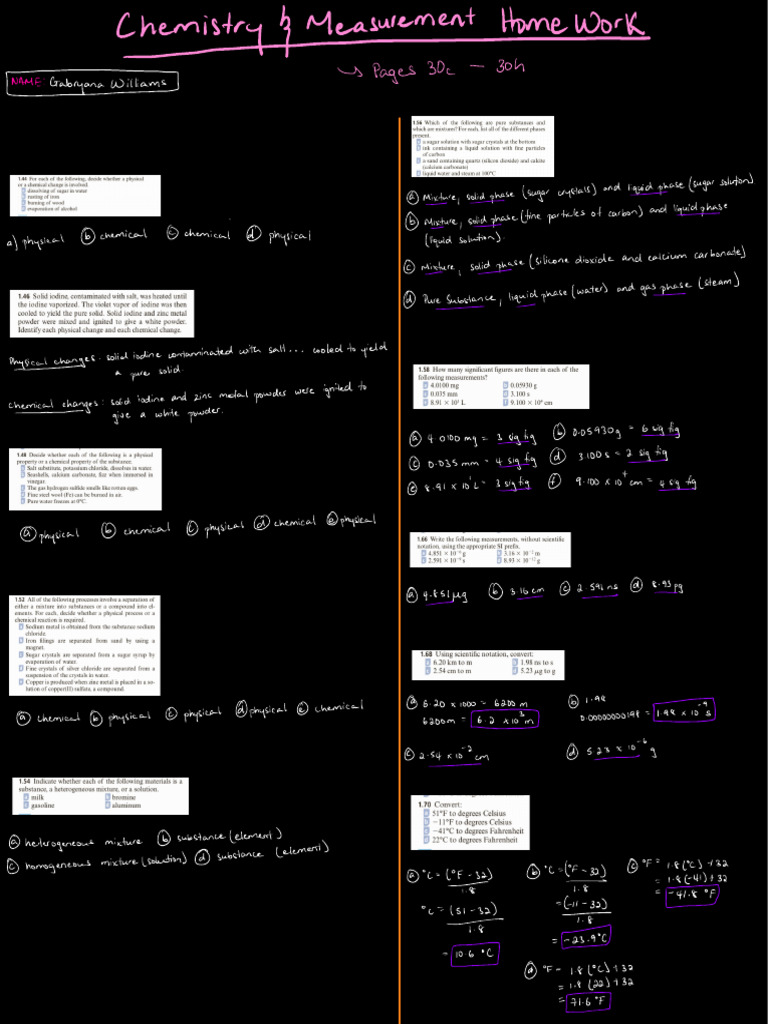 Chemistry & Measurement Home Work
↳ Pages 30c — 30h
NAME: Gabryana Williams
1.44 For each of the following, decide whether a physical
or a chemical change is involved:
a dissolving of sugar in water
b rusting of iron
c burning of wood
d evaporation of alcohol
a) physical b chemical c chemical d physical
1.46 Solid iodine, contaminated with salt, was heated until
the iodine vaporized. The violet vapor of iodine was then
cooled to yield the pure solid. Solid iodine and zinc metal
powder were mixed and ignited to give a white powder.
Identify each physical change and each chemical change.
Physical changes: solid iodine contaminated with salt... cooled to yield
a pure solid.
Chemical changes: solid iodine and zinc metal powder were ignited to
give a white powder.
1.48 Decide whether each of the following is a physical
property or a chemical property of the substance.
a Salt substitute, potassium chloride, dissolves in water.
b Seashells, calcium carbonate, fizz when immersed in
vinegar.
c The gas hydrogen sulfide smells like rotten eggs.
d Fine steel wool (Fe) can be burned in air.
e Pure water freezes at 0°C.
a physical b chemical c physical d chemical e physical
1.52 All of the following processes involve a separation of
either a mixture into substances or a compound into el-
ements. For each, decide whether a physical process or a
chemical reaction is required.
a Sodium metal is obtained from the substance sodium
chloride.
b Iron filings are separated from sand by using a
magnet.
c Sugar crystals are separated from a sugar syrup by
evaporation of water.
d Fine crystals of silver chloride are separated from a
suspension of the crystals in water.
e Copper is produced when zinc metal is placed in a so-
lution of copper(II) sulfate, a compound.
a chemical b physical c physical d physical e chemical
1.54 Indicate whether each of the following materials is a
substance, a heterogeneous mixture, or a solution.
a milk b bromine
c gasoline d aluminum
a heterogeneous mixture b substance (element)
c homogeneous mixture (solution) d substance (element)
1.56 Which of the following are pure substances and
which are mixtures? For each, list all of the different phases
present.
a a sugar solution with sugar crystals at the bottom
b ink containing a liquid solution with fine particles
of carbon
c a sand containing quartz (silicon dioxide) and calcite
(calcium carbonate)
d liquid water and steam at 100°C
a Mixture, solid phase (sugar crystals) and liquid phase (sugar solution)
b Mixture, solid phase (fine particles of carbon) and liquid phase
(liquid solution).
c Mixture, solid phase (silicone dioxide and calcium carbonate)
d Pure Substance, liquid phase (water) and gas phase (steam)
1.58 How many significant figures are there in each of the
following measurements?
a 4.0100 mg b 0.05930 g
c 0.035 mm d 3.100 s
e 8.91 × 10² L f 9.100 × 10⁴ cm
a 4.0100 mg = 3 sig fig b 0.05930g = 6 sig fig
c 0.035 mm = 4 sig fig d 3.100s = 2 sig fig
e 8.91 × 10 L = 3 sig fig f 9.100 × 10⁴ cm = 4 sig fig
1.60 Write the following measurements, without scientific
notation, using the appropriate SI prefix.
a 4.851 × 10⁻⁶ g b 3.16 × 10⁻² m
c 2.591 × 10⁻⁹ s d 8.93 × 10⁻¹² g
a 4.851 μg b 3.16 cm c 2.591 ns d 8.93 pg
1.68 Using scientific notation, convert:
a 6.20 km to m b 1.98 ns to s
c 2.54 cm to m d 5.23 μg to g
a 6.20 × 1000 = 6200 m b 1.98
6200m = 6.2 × 10³ m 0.00000000198 = 1.98 × 10⁻⁹ s
c 2.54 × 10⁻² cm d 5.23 × 10⁻⁶ g
1.70 Convert:
a 51°F to degrees Celsius
b −11°F to degrees Celsius
c −41°C to degrees Fahrenheit
d 22°C to degrees Fahrenheit
a °C = (°F − 32) b °C = (°F − 32) c °F = 1.8(°C) + 32
1.8 1.8 = 1.8(−41) + 32
°C = (51 − 32) = (−11 − 32) = −41.8 °F
1.8 1.8
= 10.6 °C = −23.9°C
d °F = 1.8(°C) + 32
= 1.8(22) + 32
= 71.6 °F